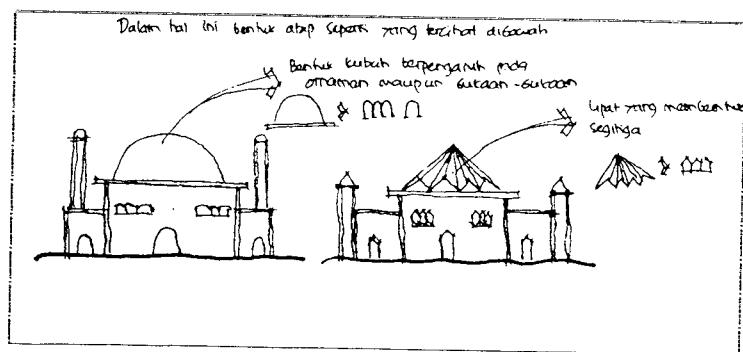 Dalam hal ini bentuk atap seperti yang terlihat dibawah
Bentuk kubah berpengaruh pada
ornamen maupun bukaan-bukaan
Lipat yang membentuk
segitiga